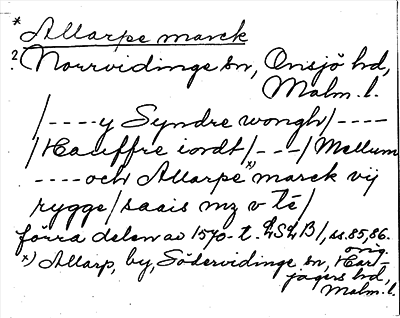 * Allarpe marck
? Norrvidinge sn, Onsjö hd,
Malm. l.
/----y Syndre wongh/----
/Hauffre iordt/---/Mellum
----och Allarpe x) marck vij
rygge/saais mz v té/
förra delen av 1570-t. LSLB/, ss. 85, 86.
orig.
x) Allarp, by, Södervidinge sn, Har-
jagers hd,
Malm. l.